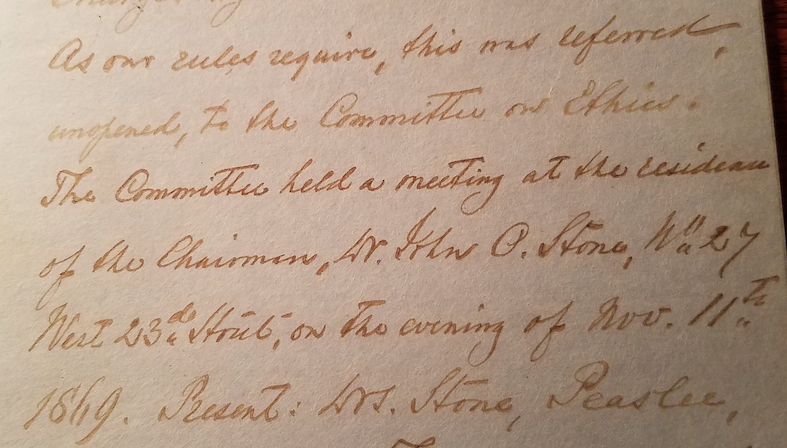 As our rules require, this was referred,
unopened, to the Committee on Ethics.
The Committee held a meeting at the residence
of the Chairman, Dr. John O. Stone, No 27
West 23d Street, on the evening of Nov. 11th
1869. Present: Drs. Stone, Peaslee,